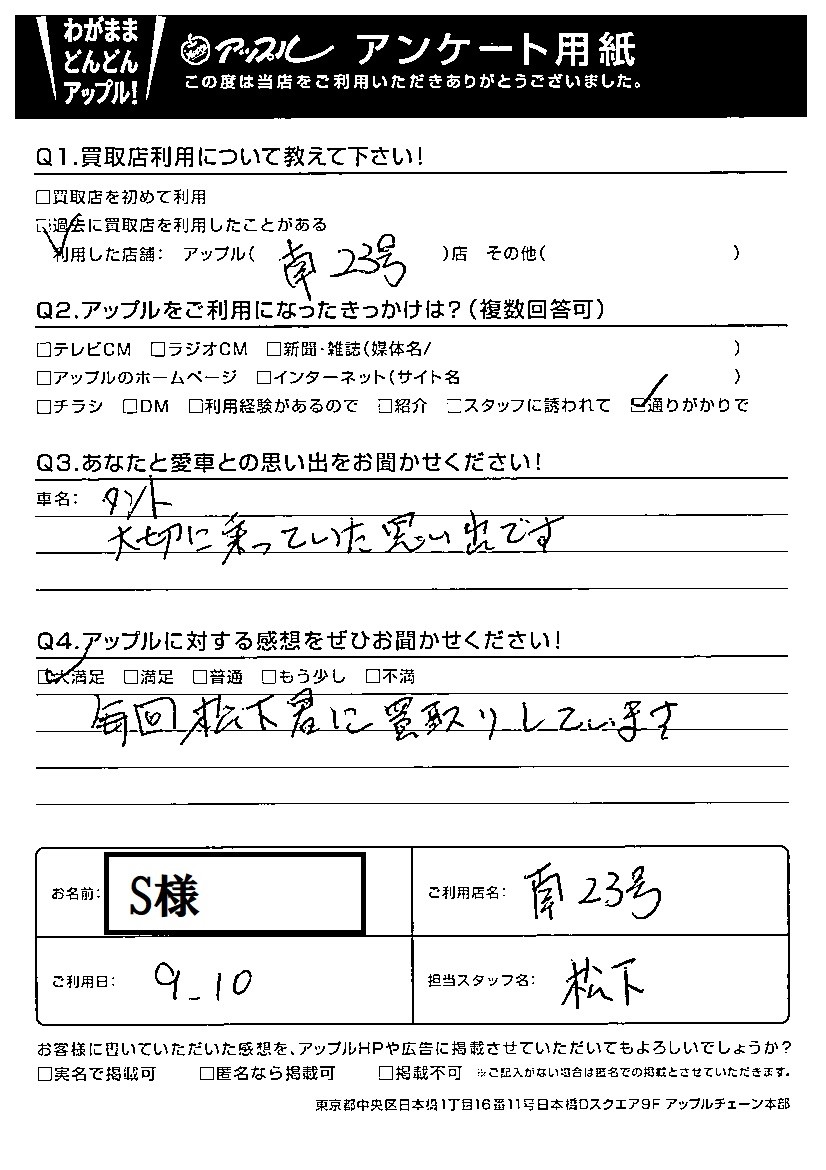 わがまま
どんどん
アップル!
アップル アンケート用紙
この度は当店をご利用いただきありがとうございました。
Q1.買取店利用について教えて下さい!
□買取店を初めて利用
☑過去に買取店を利用したことがある
利用した店舗: アップル( 南23号 )店 その他( )
Q2.アップルをご利用になったきっかけは?(複数回答可)
□テレビCM □ラジオCM □新聞・雑誌(媒体名/ )
□アップルのホームページ □インターネット(サイト名 )
□チラシ □DM □利用経験があるので □紹介 □スタッフに誘われて ☑通りがかりで
Q3.あなたと愛車との思い出をお聞かせください!
車名: タント
大切に乗っていた思い出です
Q4.アップルに対する感想をぜひお聞かせください!
☑大満足 □満足 □普通 □もう少し □不満
毎回松下君に買取りしています
お名前: S様
ご利用店名: 南23号
ご利用日: 9-10
担当スタッフ名: 松下
お客様に書いていただいた感想を、アップルHPや広告に掲載させていただいてもよろしいでしょうか?
□実名で掲載可 □匿名なら掲載可 □掲載不可 ※ご記入がない場合は匿名での掲載とさせていただきます。
東京都中央区日本橋1丁目16番11号日本橋Dスクエア9F アップルチェーン本部